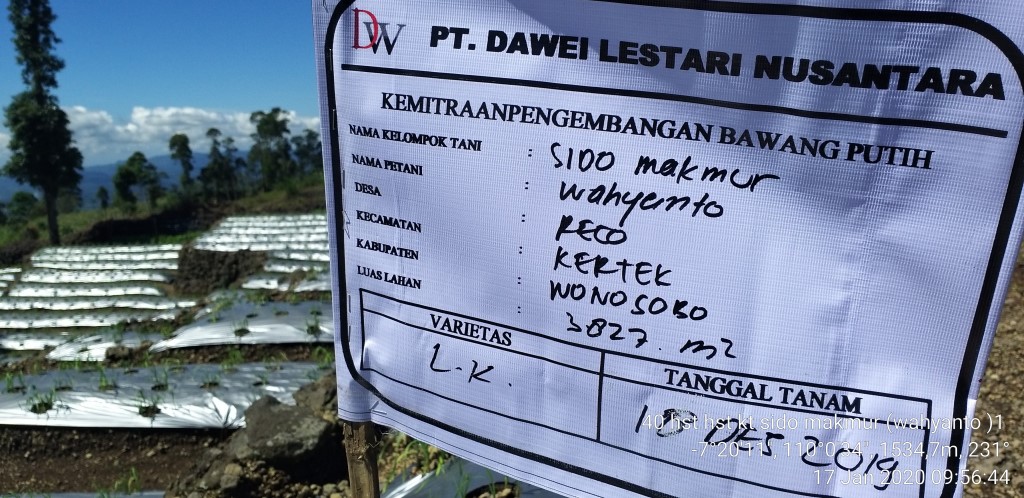 DW PT. DAWEI LESTARI NUSANTARA
KEMITRAANPENGEMBANGAN BAWANG PUTIH
NAMA KELOMPOK TANI : SIDO makmur
NAMA PETANI : wahyanto
DESA : RECO
KECAMATAN : KERTEK
KABUPATEN : WONOSOBO
LUAS LAHAN : 3827 m2
VARIETAS
L.K.
TANGGAL TANAM
2019
40 hst hst kt sido makmur (wahyanto )1
-7°20'11", 110°0'34", 1534,7m, 231°
17 Jan 2020 09:56:44